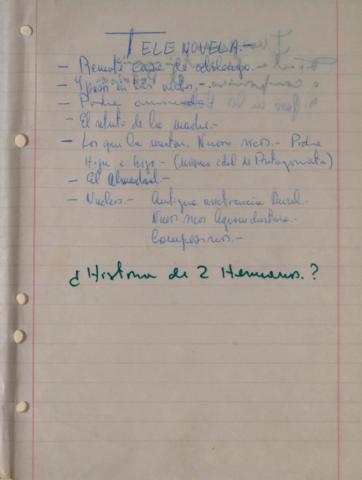 TELENOVELA.-
- Remate casa de abolengo.-
- 4 pasos en las nubes.-
- Padre
- El retrato de la madre.-
- Los que la rematan. Nuevos ricos.- Padre
Hija e hijo - (misma edad de Protagonista)
- El Almendral.-
- Nucleos.- Antigua aristocracia Rural.
Nuevos ricos Agroindustria.
Campesinos.-
¿Historia de 2 Hermanos.?